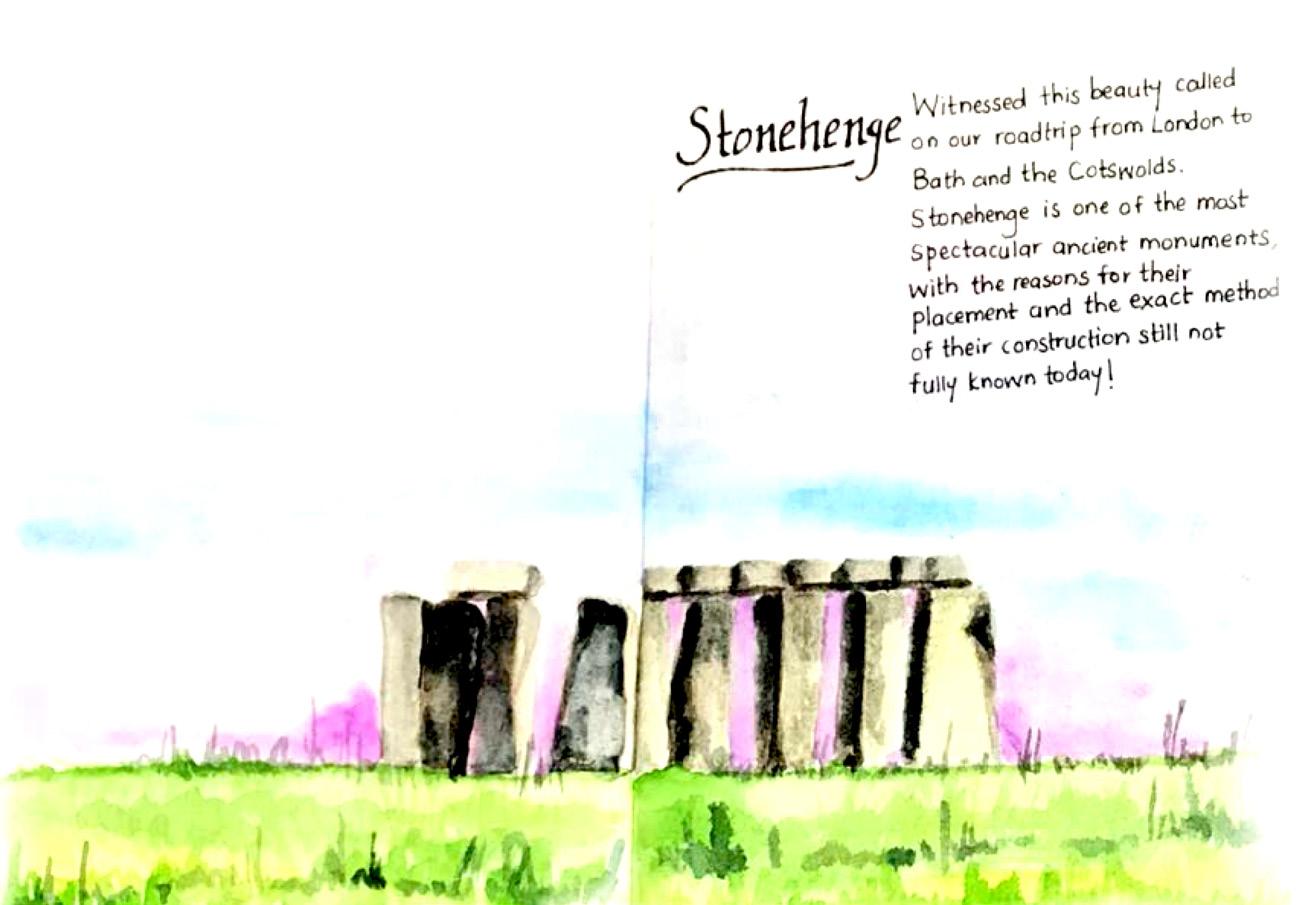 Stonehenge
Witnessed this beauty called
on our roadtrip from London to
Bath and the Cotswolds.
Stonehenge is one of the most
spectacular ancient monuments,
with the reasons for their
placement and the exact method
of their construction still not
fully known today!